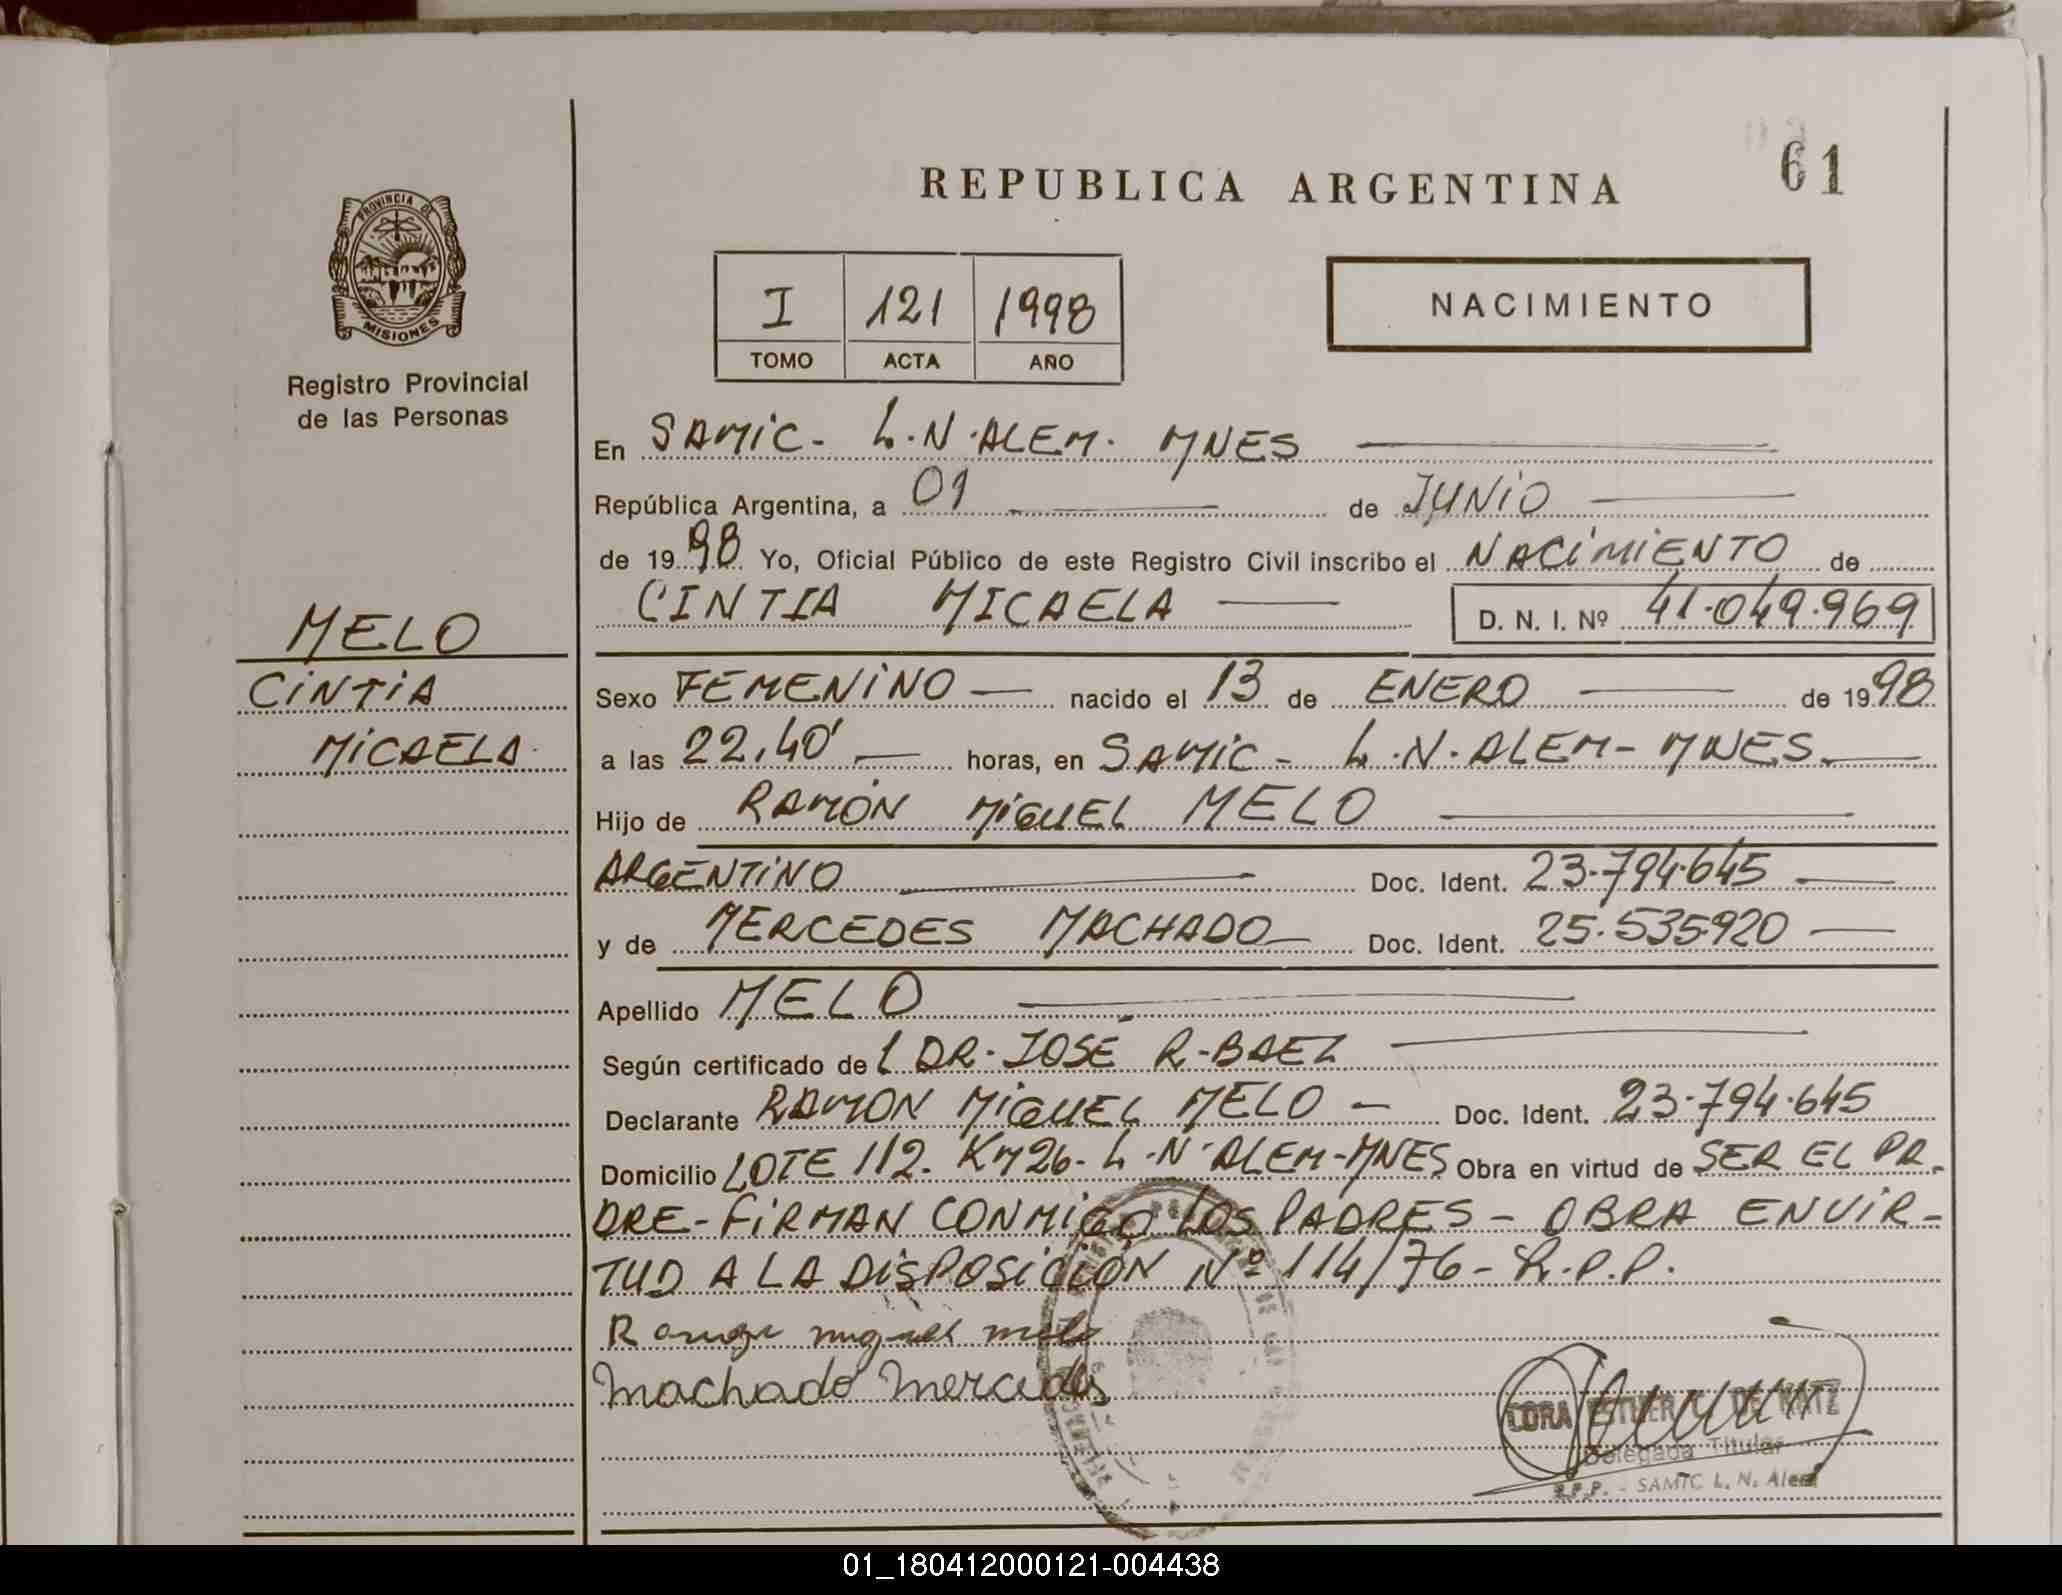 REPUBLICA ARGENTINA
61
PROVINCIA DE
MISIONES
Registro Provincial
de las Personas
I 121 1998
TOMO ACTA AÑO
NACIMIENTO
En SAMIC - L.N.ALEM. MNES
República Argentina, a 01 de JUNIO
de 1998 Yo, Oficial Público de este Registro Civil inscribo el NACIMIENTO de
CINTIA MICAELA D. N. I. Nº 41.049.969
MELO
CINTIA
MICAELA.
Sexo FEMENINO nacido el 13 de ENERO de 1998
a las 22,40' horas, en SAMIC - L.N.ALEM - MNES.
Hijo de RAMÓN MIGUEL MELO
ARGENTINO Doc. Ident. 23.794.645
y de MERCEDES MACHADO Doc. Ident. 25.535.920
Apellido MELO
Según certificado de L DR. JOSÉ R. BAEZ
Declarante RAMON MIGUEL MELO - Doc. Ident. 23.794.645
Domicilio LOTE 112. KM 26. L.N.ALEM-MNES Obra en virtud de SER EL PA-
DRE - FIRMAN CONMIGO LOS PADRES - OBRA EN VIR-
TUD A LA DISPOSICIÓN Nº 114/76 - R.P.P.
miguel melo
Machado Mercedes
CORA ESTHER DE
Delegada Titular
R.P.P. - SAMIC L. N. Alem
01_180412000121-004438